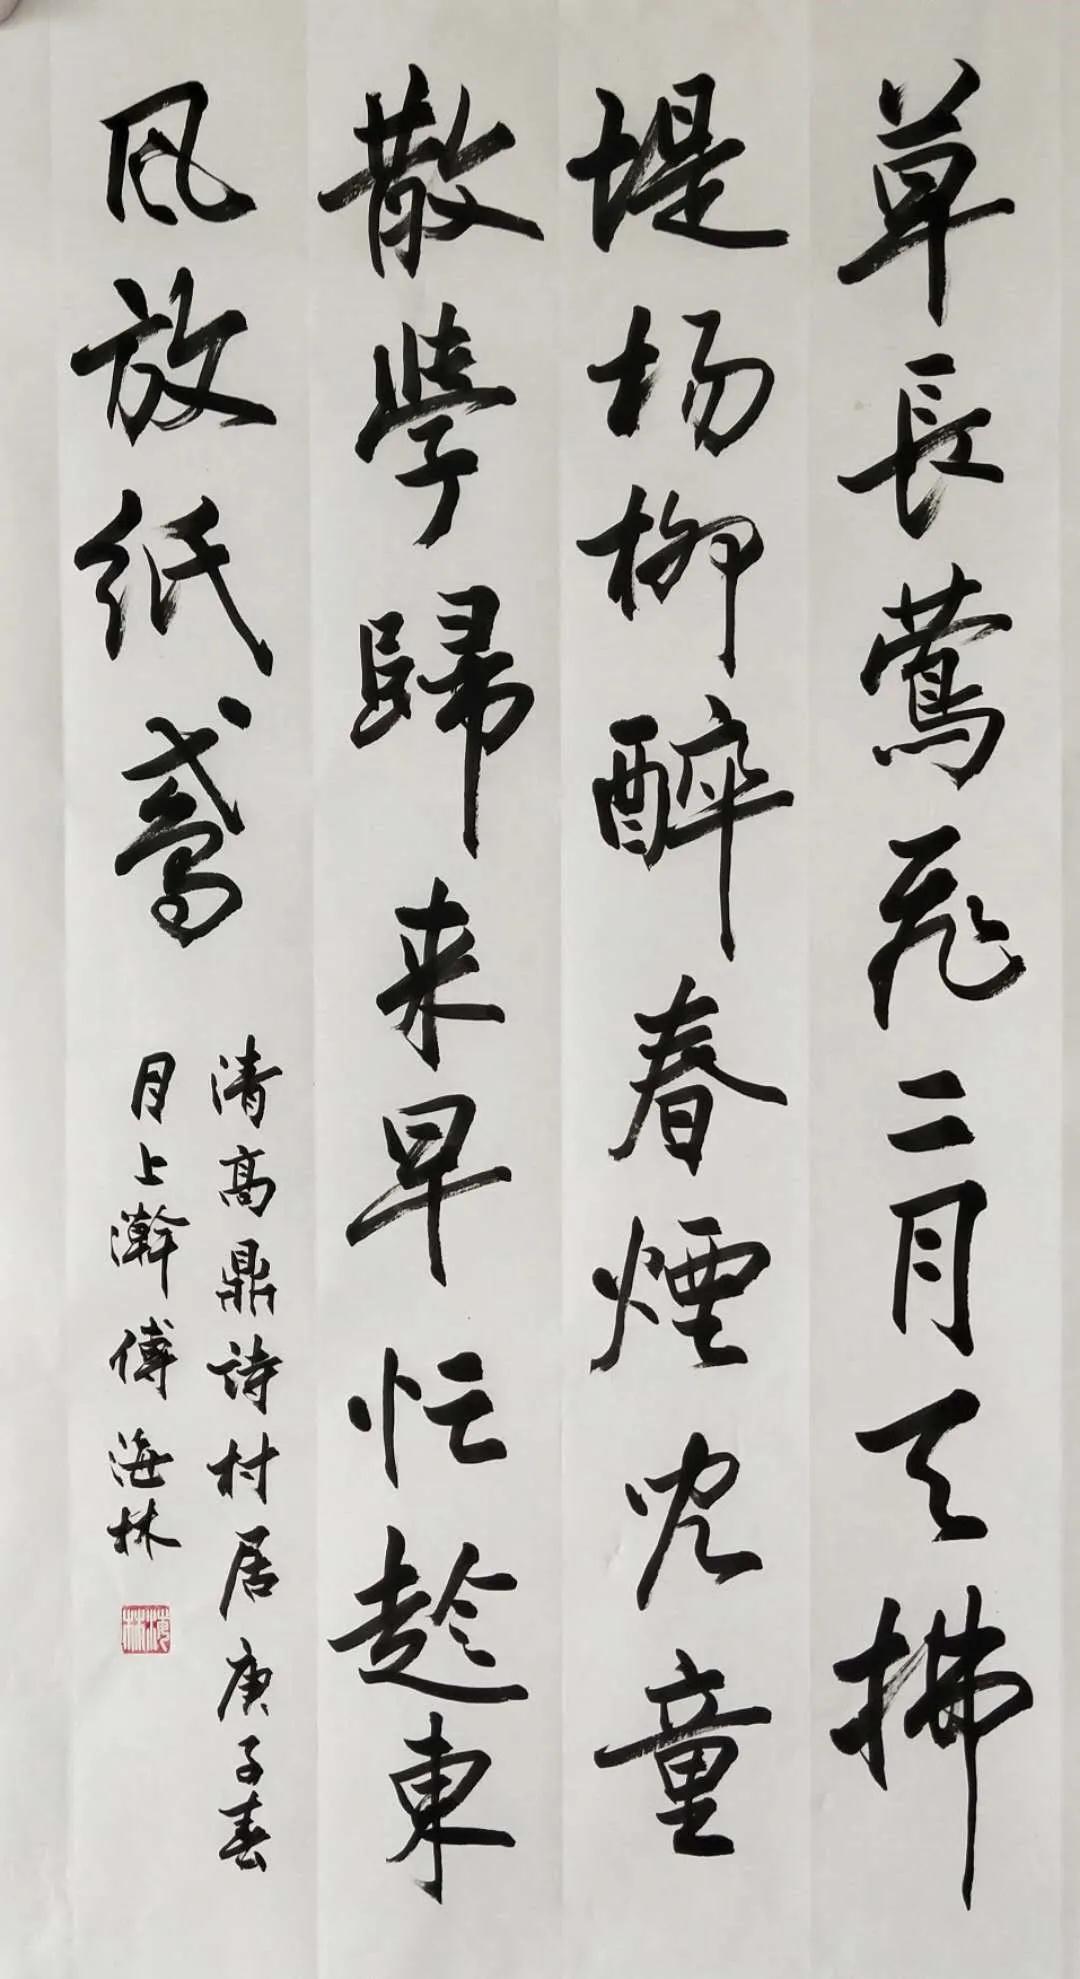 草長鶯飛二月天拂
堤場柳醉春煙兒童
散學歸来早忙趁東
风放纸鳶
清高鼎詩村居庚子春
月上澣傅海林
海林